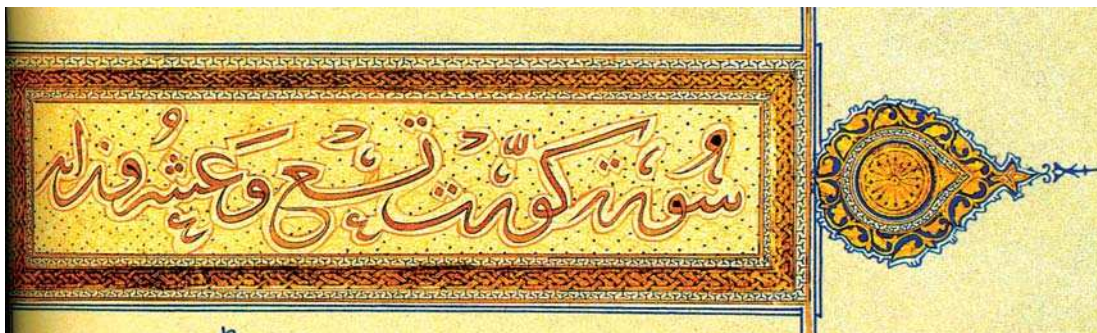 سُورَة كُوِّرَت تِسْعٌ وَعِشْرُونَ اية